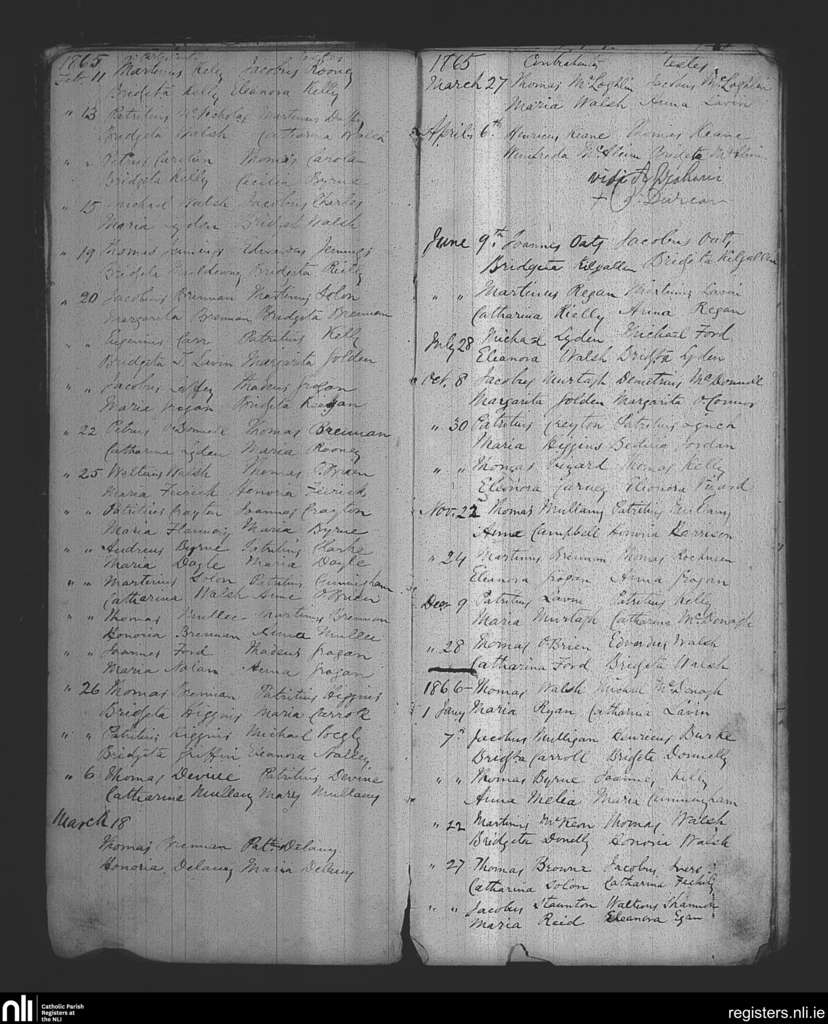 1865
Feb. 11 Martinus Kelly Jacobus Rooney
Bridgeta Kelly Eleanora Kelly
" 13 Patritius McNicholas Martinus Duffy
Bridgeta Walsh Catharina Walsh
" " Petrus Carolan Thomas Carolan
Bridgeta Kelly Cecilia Byrne
" 15 Michael Walsh Jacobus Charles
Maria Lyden Bridget Walsh
" 19 Thomas Jennings Edwardus Jennings
Bridgeta Bridgeta Kielly
" 20 Jacobus Brennan Martinus Solon
Margarita Brennan Bridgeta Brennan
" " Eugenius Carr Patritius Kelly
Bridgeta T. Lavin Margarita Jolden
" " Jacobus Thadeus Grogan
Maria Grogan Bridgeta Keegan
" 22 Petrus O'Donnell Thomas Brennan
Catharina Lyden Maria Rooney
" 25 Walterus Walsh Thomas O'Brien
Maria Feirick Honoria Feirick
" " Patritius Crayton Joannes Crayton
Maria Flannery Maria Byrne
" " Andreas Byrne Patritius Clarke
Maria Doyle Maria Doyle
" " Martinus Solon Patritius Cunningham
Catharina Walsh Anne O'Brien
" " Thomas Mullee Martinus Brennan
Honoria Brennan Anna Mullee
" " Joannes Ford Thadeus Grogan
Maria Nolan Anna Grogan
" 26 Thomas Brennan Patritius Higgins
Bridgeta Higgins Maria
" " Patritius Higgins Michael
Bridgeta Griffin Eleanora Nalley
" 6 Thomas Devine Patritius Devine
Catharina Mullany Mary Mullany
March 18
Thomas Brennan Patt Delany
Honoria Delany Maria Delany
1865 Contrahentes testes
March 27 Thomas McLoghlin Jacobus McLoghlin
Maria Walsh Anna Lavin
Aprilis 6th Henricus Keane Thomas Keane
Winefreda Bridgeta
vidi
+ P. Durcan
June 9th Joannes Oats Jacobus Oats
Bridgeta Kilgallen Bridgeta Kilgallen
" " Martinus Regan Martinus Lavin
Catharina Kielly Anna Regan
July 28 Michael Lyden Michael Ford
Eleanora Walsh Bridgta Lyden
Oct. 8 Jacobus Murtagh Demetrius McDonnell
Margarita Jolden Margarita O'Connor
" 30 Patritius Creyton Patritius Lynch
Maria Higgins Bedelia Jordan
" " Thomas Vizard Thomas Kelly
Eleanora Garvey Eleonora Vizard
Nov. 22 Thomas Mullany Patritius Mullany
Anna Campbell Honoria Harrison
" 24 Martinus Brennan Thomas
Eleanora Grogan Anna Grogan
Decr 9 Patritius Lavin Patritius Kelly
Maria Murtagh Catharina McDonagh
" 28 Thomas O'Brien Edvardus Walsh
Catharina Ford Bridgeta Walsh
1866 - Thomas Walsh Michael McDonagh
1 Jany Maria Ryan Catharina Lavin
7th Jacobus Mulligan Henricus Burke
Bridgta Carroll Bridgeta Donnelly
" " Thomas Byrne Joannes Kelly
Anna Melea Maria Cunningham
" 22 Martinus McKeon Thomas Walsh
Bridgeta Donelly Honoria Walsh
" 27 Thomas Browne Jacobus
Catharina Solon Catharina
" " Jacobus Staunton Walterus Shannon
Maria Reid Eleanora Egan
nli
Catholic Parish
Registers at
the NLI
registers.nli.ie